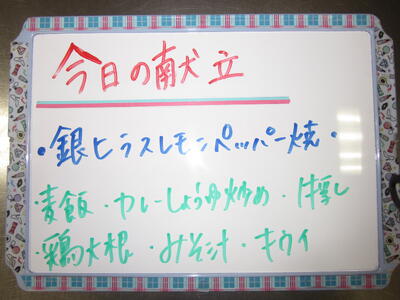 今日の献立
・銀ヒラスレモンペッパー焼・
・麦飯・カレーしょうゆ炒め・汁
・鶏大根・みそ汁・キウイ